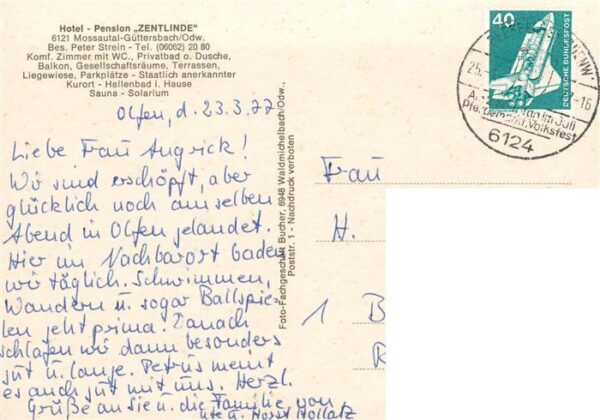 Hotel - Pension „ZENTLINDE"
6121 Mossautal-Güttersbach/Odw.
Bes. Peter Strein - Tel. (06062) 20 80
Komf. Zimmer mit WC., Privatbad o. Dusche,
Balkon, Gesellschaftsräume, Terrassen,
Liegewiese, Parkplätze - Staatlich anerkannter
Kurort - Hallenbad i. Hause
Sauna - Solarium
Olfen, d. 23.3.77
Liebe Frau Augrick!
Wir sind erschöpft, aber
glücklich noch am selben
Abend in Olfen gelandet.
Hier im Nachbarort baden
wir täglich. Schwimmen,
Wandern u. sogar Ballspie-
len geht prima. Danach
schlafen wir dann besonders
gut u. lange. Petrus meint
es auch gut mit uns. Herzl.
Grüße an Sie u. die Familie von
Ute u. Horst Hollatz
Foto-Fachgeschäft Bucher, 6948 Waldmichelbach/Odw.,
Poststr. 1 - Nachdruck verboten
40
DEUTSCHE BUNDESPOST
25.
-16
im Juli
Volksfest
6124
Frau
H.
1 B